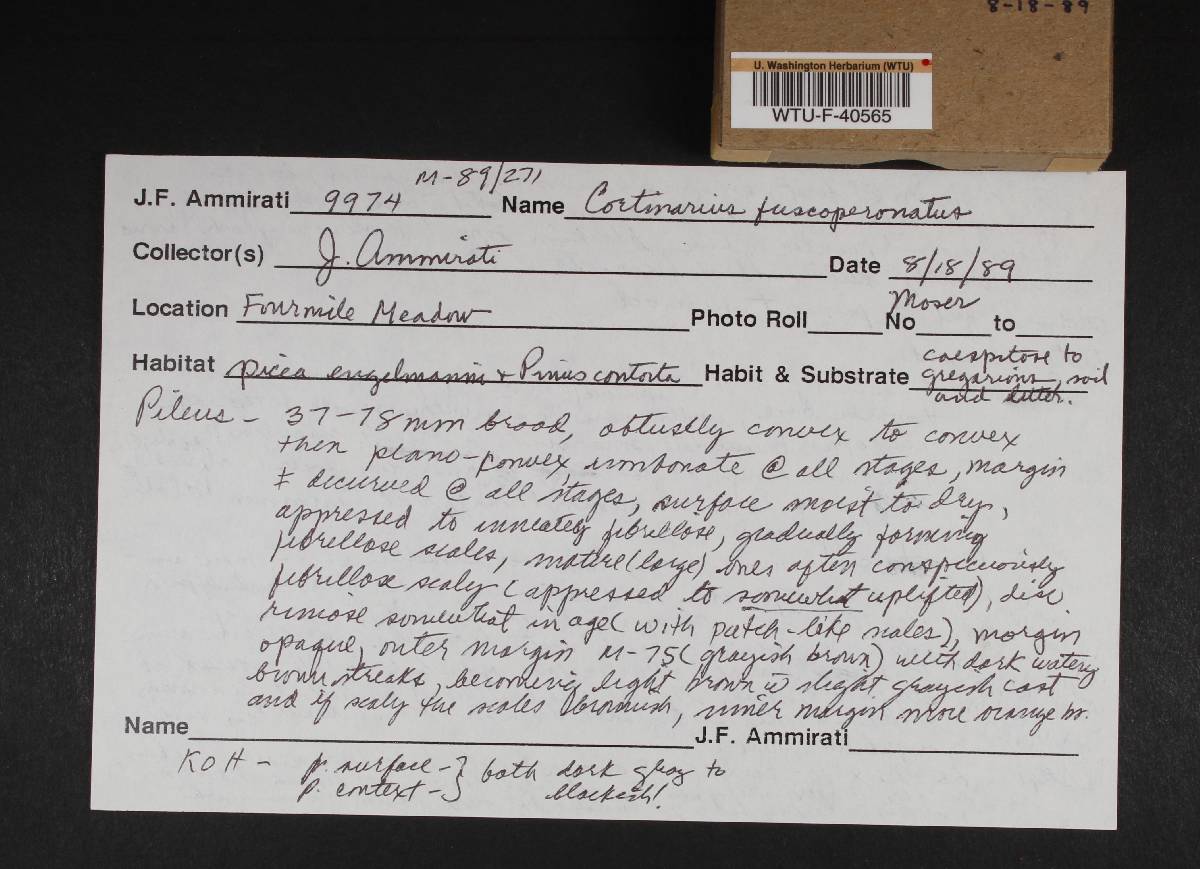 8-18-89
U. Washington Herbarium (WTU)
WTU-F-40565
M-89/271
J.F. Ammirati 9974 Name Cortinarius fuscoperonatus
Collector(s) J. Ammirati Date 8/18/89
Location Fourmile Meadow Photo Roll No Moser to
Habitat Picea engelmannii + Pinus contorta Habit & Substrate caespitose to
gregarious, soil
and litter.
Pileus - 37-78 mm broad, obtusely convex to convex
then plano-convex, umbonate @ all stages, margin
± decurved @ all stages, surface moist to dry,
appressed to innately fibrillose, gradually forming
fibrillose scales, mature (large) ones often conspicuously
fibrillose scaly (appressed to somewhat uplifted), disc
rimose somewhat in age (with patch-like scales), margin
opaque, outer margin M-75 (grayish brown) with dark watery
brown streaks, becoming light brown w slight grayish cast
and if scaly the scales brownish, inner margin more orange br.
Name J.F. Ammirati
KOH - p. surface - } both dark gray to
p. context - } blackish!